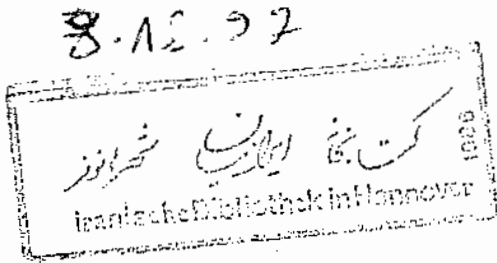 8.12.97
کتابخانه ایرانیان شهر هانوفر
1986
Iranische Bibliothek in Hannover